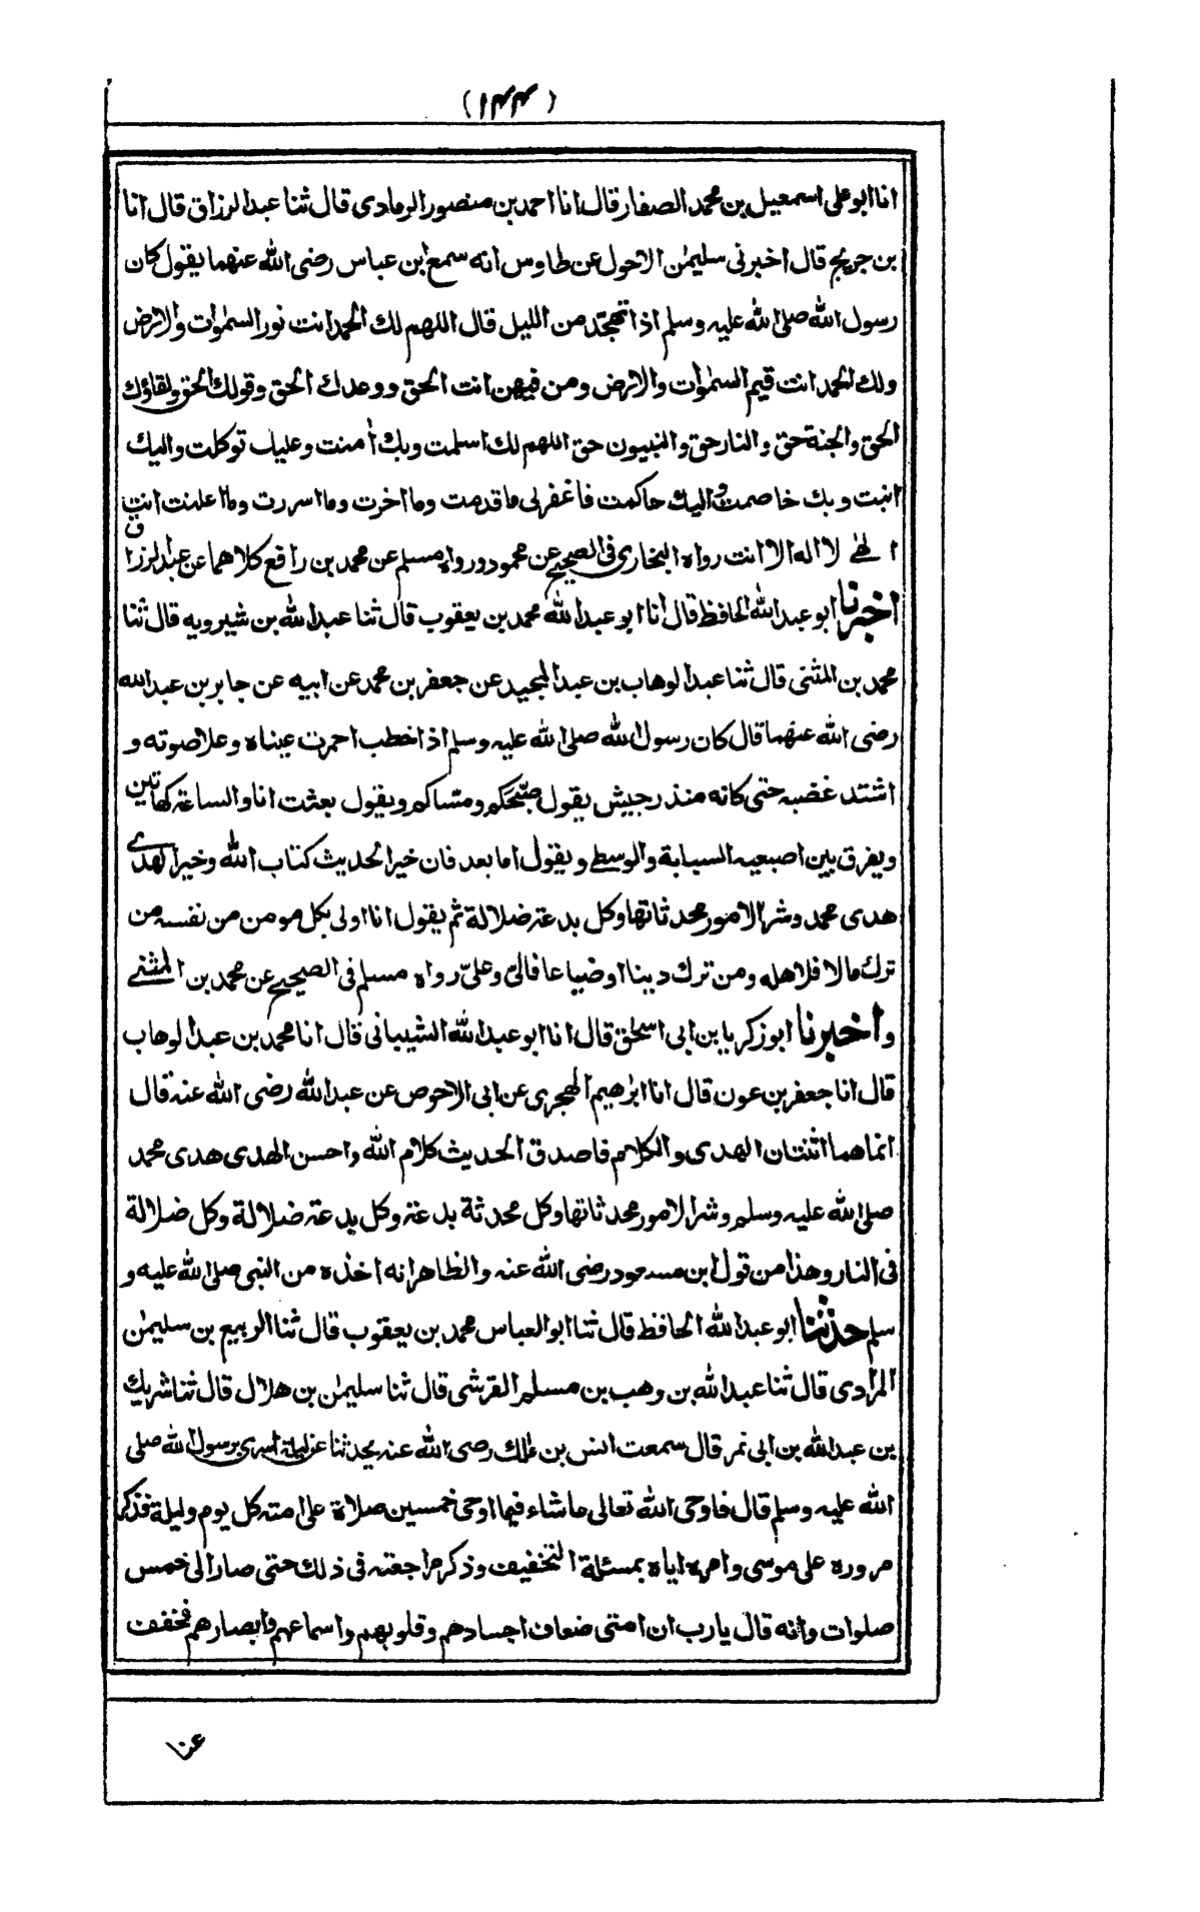 (١٤٤)
انا ابو على اسمعيل بن محمد الصفار قال انا احمد بن منصور الرمادى قال ثنا عبد الرزاق قال انا
بن جريج قال اخبرنى سليمٰن الاحول عن طاوس انه سمع ابن عباس رضى الله عنهما يقول كان
رسول الله صلى الله عليه وسلم اذا تهجد من الليل قال اللهم لك الحمد انت نور السمٰوات والارض
ولك الحمد انت قيم السمٰوات والارض ومن فيهن انت الحق ووعدك الحق وقولك الحق ولقاؤك
الحق والجنة حق والنار حق والنبيون حق اللهم لك اسلمت وبك اٰمنت وعليك توكلت واليك
انبت وبك خاصمت واليك حاكمت فاغفرلى ما قدمت وما اخرت وما اسررت وما اعلنت انت
الٰهى لا اله الا انت رواه البخارى فى الصحيح عن محمود ورواه مسلم عن محمد بن رافع كلاهما عن عبد الرزاق
اخبرنا ابو عبد الله الحافظ قال انا ابو عبد الله محمد بن يعقوب قال ثنا عبد الله بن شيرويه قال ثنا
محمد بن المثنى قال ثنا عبد الوهاب بن عبد المجيد عن جعفر بن محمد عن ابيه عن جابر بن عبد الله
رضى الله عنهما قال كان رسول الله صلى الله عليه وسلم اذا خطب احمرت عيناه وعلا صوته و
اشتد غضبه حتى كانه منذر جيش يقول صبّحكم ومسّاكم ويقول بعثت انا والساعة كهاتين
ويفرق بين اصبعيه السبابة والوسطى ويقول اما بعد فان خير الحديث كتاب الله وخير الهدى
هدى محمد وشر الامور محدثاتها وكل بدعة ضلالة ثم يقول انا اولى بكل مومن من نفسه من
ترك مالا فلاهله ومن ترك دينا او ضياعا فالىّ وعلىّ رواه مسلم فى الصحيح عن محمد بن المثنى
واخبرنا ابو زكريا بن ابى اسحٰق قال انا ابو عبد الله الشيبانى قال انا محمد بن عبد الوهاب
قال انا جعفر بن عون قال انا ابرٰهيم الهجرى عن ابى الاحوص عن عبد الله رضى الله عنه قال
انما هما اثنتان الهدى والكلام فاصدق الحديث كلام الله واحسن الهدى هدى محمد
صلى الله عليه وسلم وشر الامور محدثاتها وكل محدثة بدعة وكل بدعة ضلالة وكل ضلالة
فى النار وهذا من قول ابن مسعود رضى الله عنه والظاهر انه اخذه من النبى صلى الله عليه و
سلم حدثنا ابو عبد الله الحافظ قال ثنا ابو العباس محمد بن يعقوب قال ثنا الربيع بن سليمٰن
المرادى قال ثنا عبد الله بن وهب بن مسلم القرشى قال ثنا سليمٰن بن هلال قال ثنا شريك
بن عبد الله بن ابى نمر قال سمعت انس بن مٰلك رضى الله عنه يحدثنا عن ليلة اسرى برسول الله صلى
الله عليه وسلم قال فاوحى الله تعالى ما شاء فيما اوحى خمسين صلاة على امته كل يوم وليلة فذكر
مروره على موسى وامره اياه بمسئلة التخفيف وذكر مراجعته فى ذلك حتى صار الى خمس
صلوات وانه قال يارب ان امتى ضعاف اجسادهم وقلوبهم واسماعهم وابصارهم فخفف
عنا